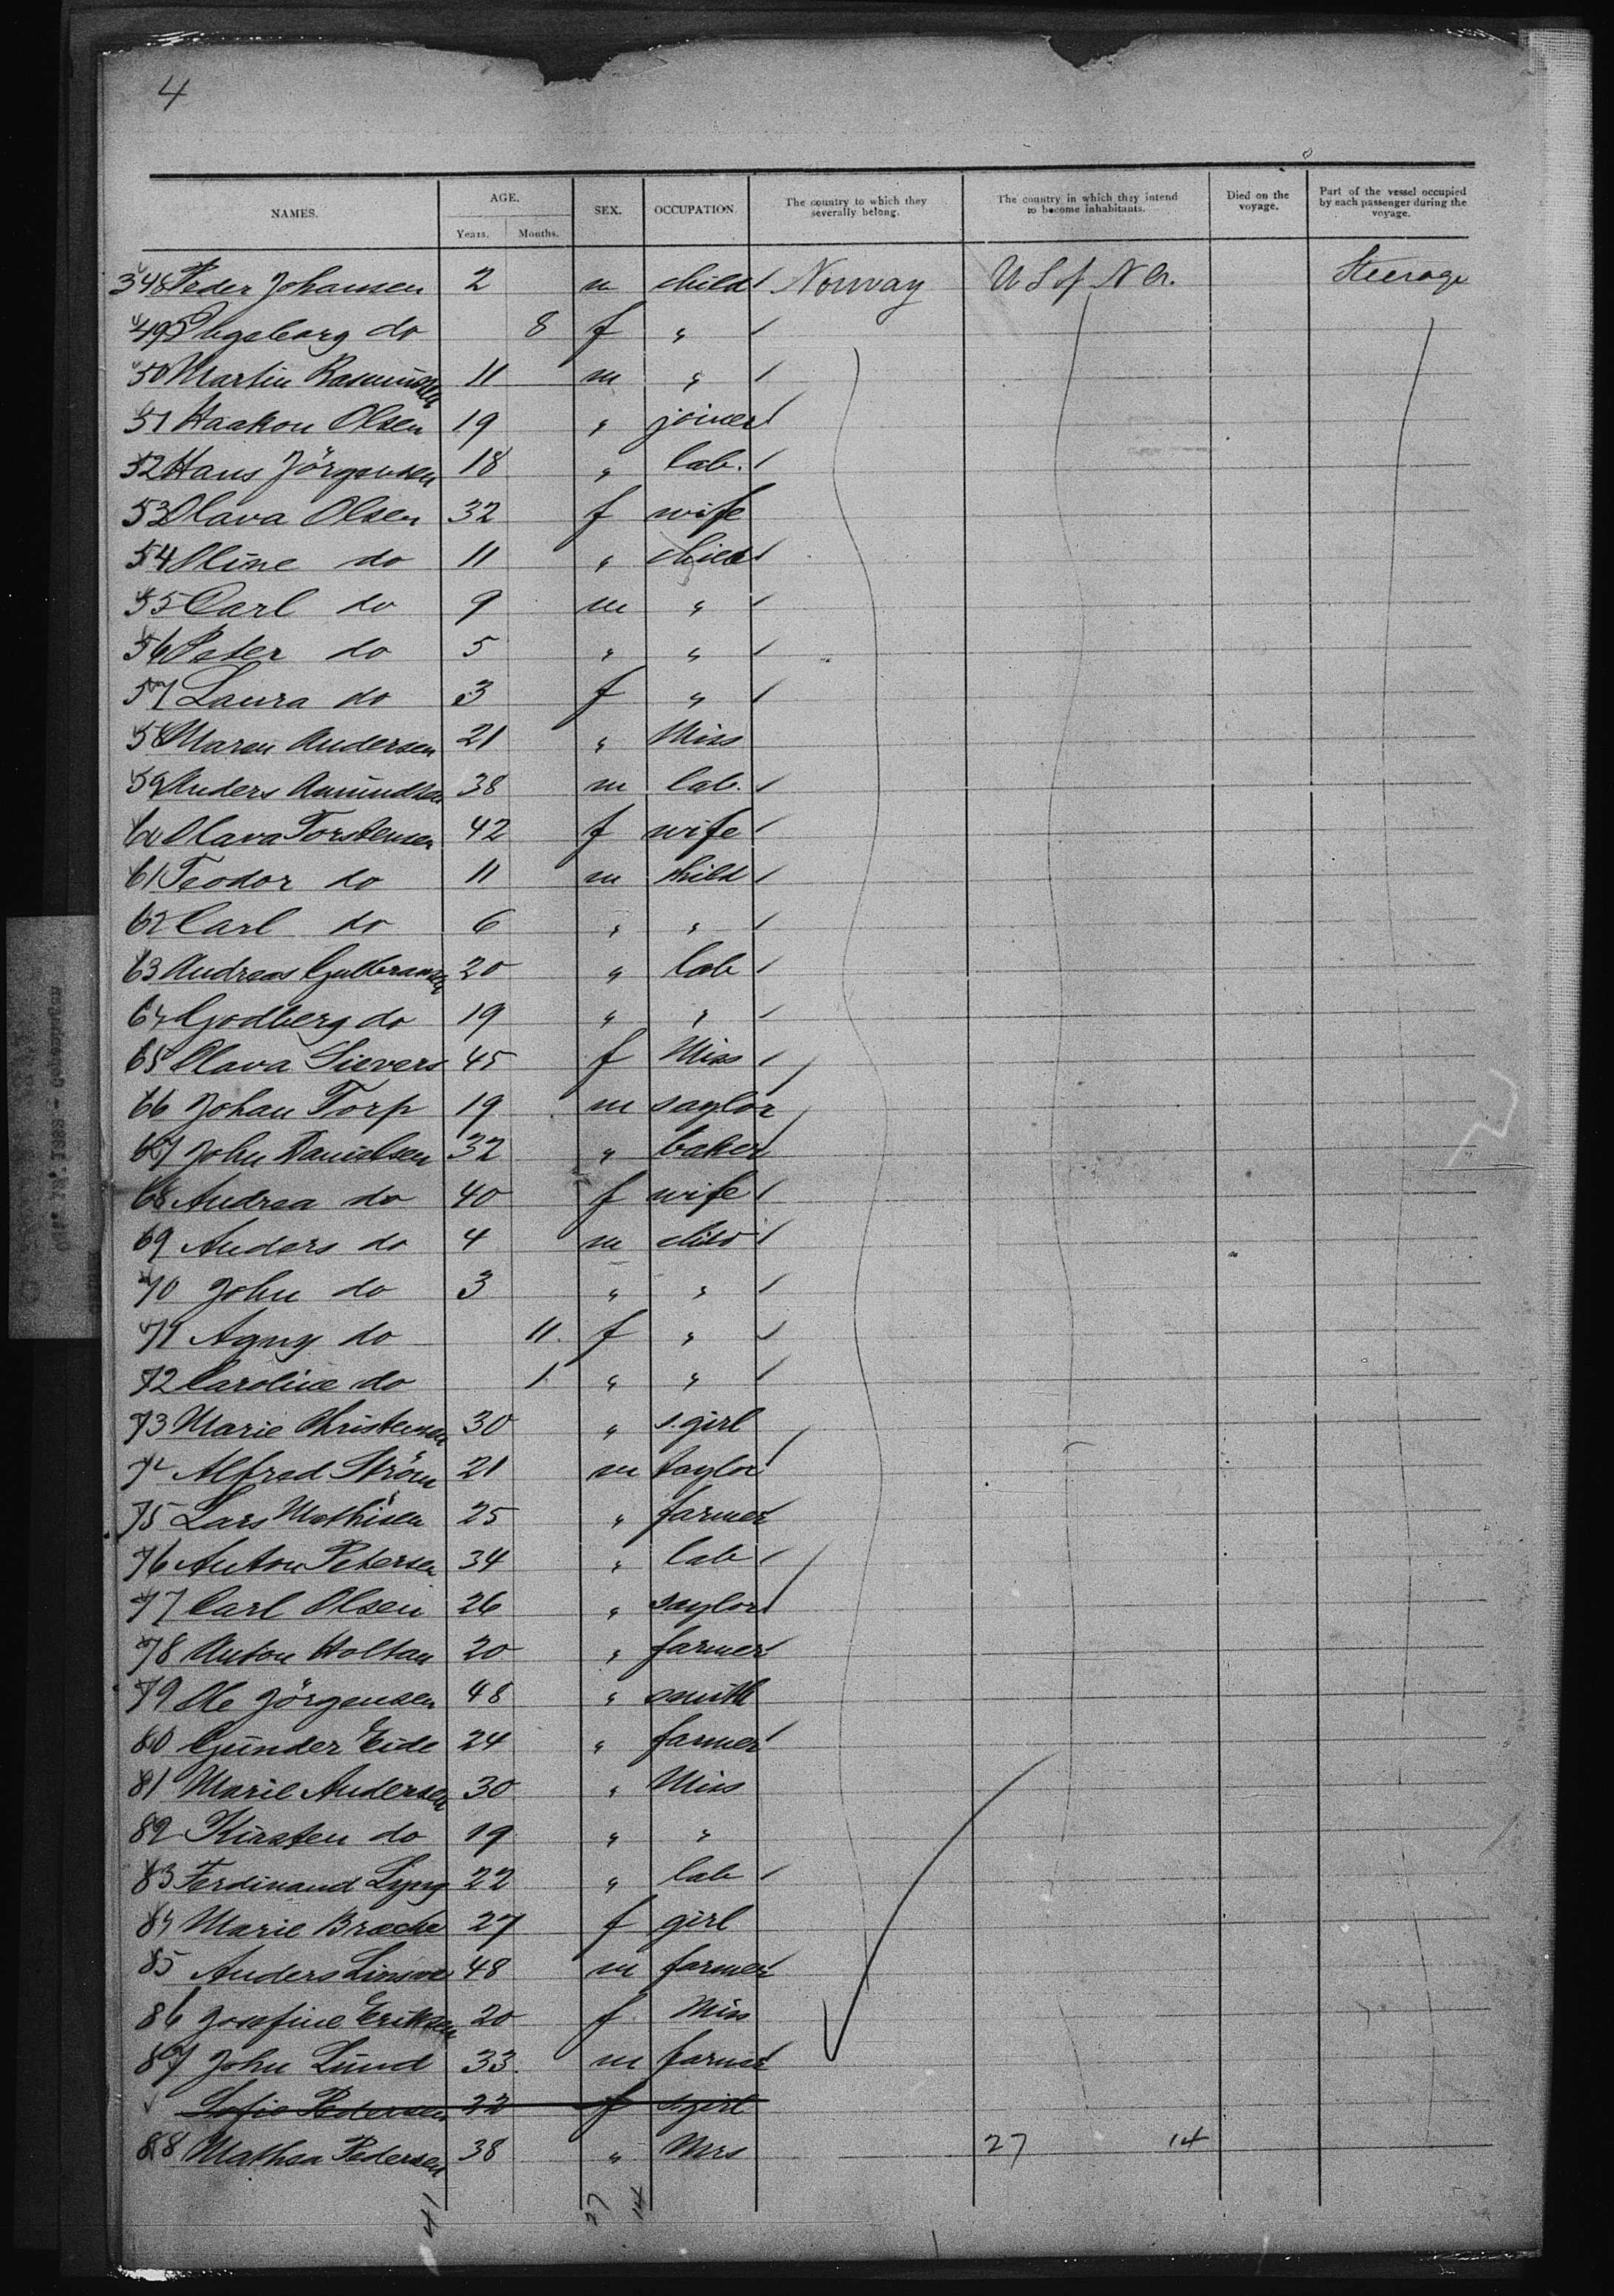 4
NAMES. AGE. Years. Months. SEX. OCCUPATION. The country to which they severally belong. The country in which they intend to become inhabitants. Died on the voyage. Part of the vessel occupied by each passenger during the voyage.
348 Peder Johansen 2 m child Norway U S of N A. Steerage
49 Ingeborg do 8 f "
50 Martin Rasmussen 11 m "
51 Haakon Olsen 19 " joiner
52 Hans Jörgensen 18 " lab.
53 Olava Olsen 32 f wife
54 Oline do 11 " child
55 Carl do 9 m "
56 Peter do 5 " "
57 Laura do 3 f "
58 Maren Andersen 21 " Miss
59 Anders Amundsen 38 m lab.
60 Olava Torstensen 42 f wife
61 Teodor do 11 m child
62 Carl do 6 " "
63 Andreas Gulbransen 20 " lab
64 Godberg do 19 " "
65 Olava Sievers 45 f Miss
66 Johan Torp 19 m saylor
67 John Danielsen 32 " baker
68 Andrea do 40 f wife
69 Anders do 4 m child
70 John do 3 " "
71 Agny do 11. f "
72 Caroline do 1 " "
73 Marie Christensen 30 " s. girl
74 Alfred Ström 21 m taylor
75 Lars Mathisen 25 " farmer
76 Anton Petersen 34 " lab
77 Carl Olsen 26 " saylor
78 Anton Holtan 20 " farmer
79 Ole Jörgensen 48 " smith
80 Gunder Eide 24 " farmer
81 Marie Andersen 30 " Miss
82 Kirsten do 19 " "
83 Ferdinand Lyng 22 " lab
84 Marie Brache 27 f girl
85 Anders 48 m farmer
86 Josefine Eriksen 20 f Miss
87 John Lund 33. m farmer
Sofie Pedersen 22 f s. girl
88 Mathea Pedersen 38 " Mrs 27 14
41 27 14